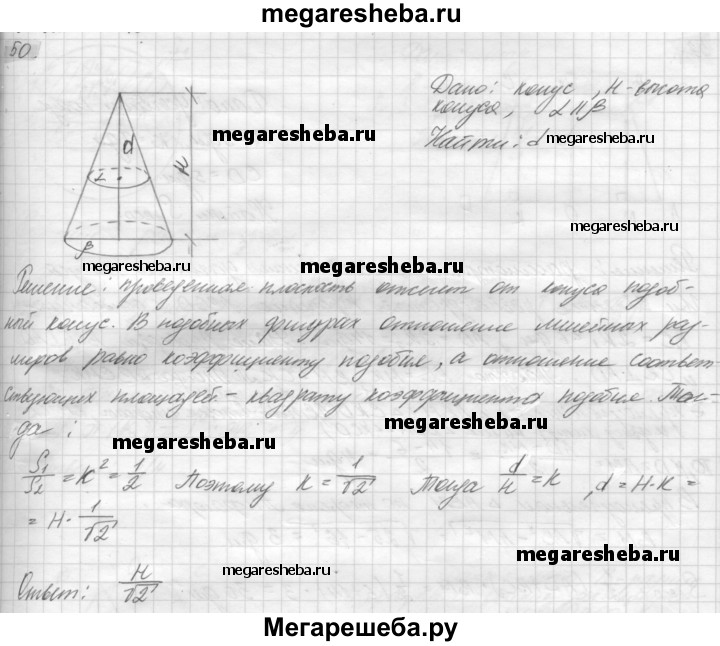 megaresheba.ru
50.
Дано: конус, H - высота
конуса, α || β
Найти: d
d
H
α
β
megaresheba.ru
megaresheba.ru
megaresheba.ru
megaresheba.ru
megaresheba.ru
Решение: проведенная плоскость отсечет от конуса подоб-
ный конус. В подобных фигурах отношение линейных раз-
меров равно коэффициенту подобия, а отношение соответ-
ствующих площадей - квадрату коэффициента подобия. Тог-
да:
megaresheba.ru
megaresheba.ru
S1/S2 = K² = 1/2 Поэтому K = 1/√2 Тогда d/H = K, d = H·K =
= H · 1/√2
megaresheba.ru
megaresheba.ru
Ответ: H/√2
Мегарешеба.ру